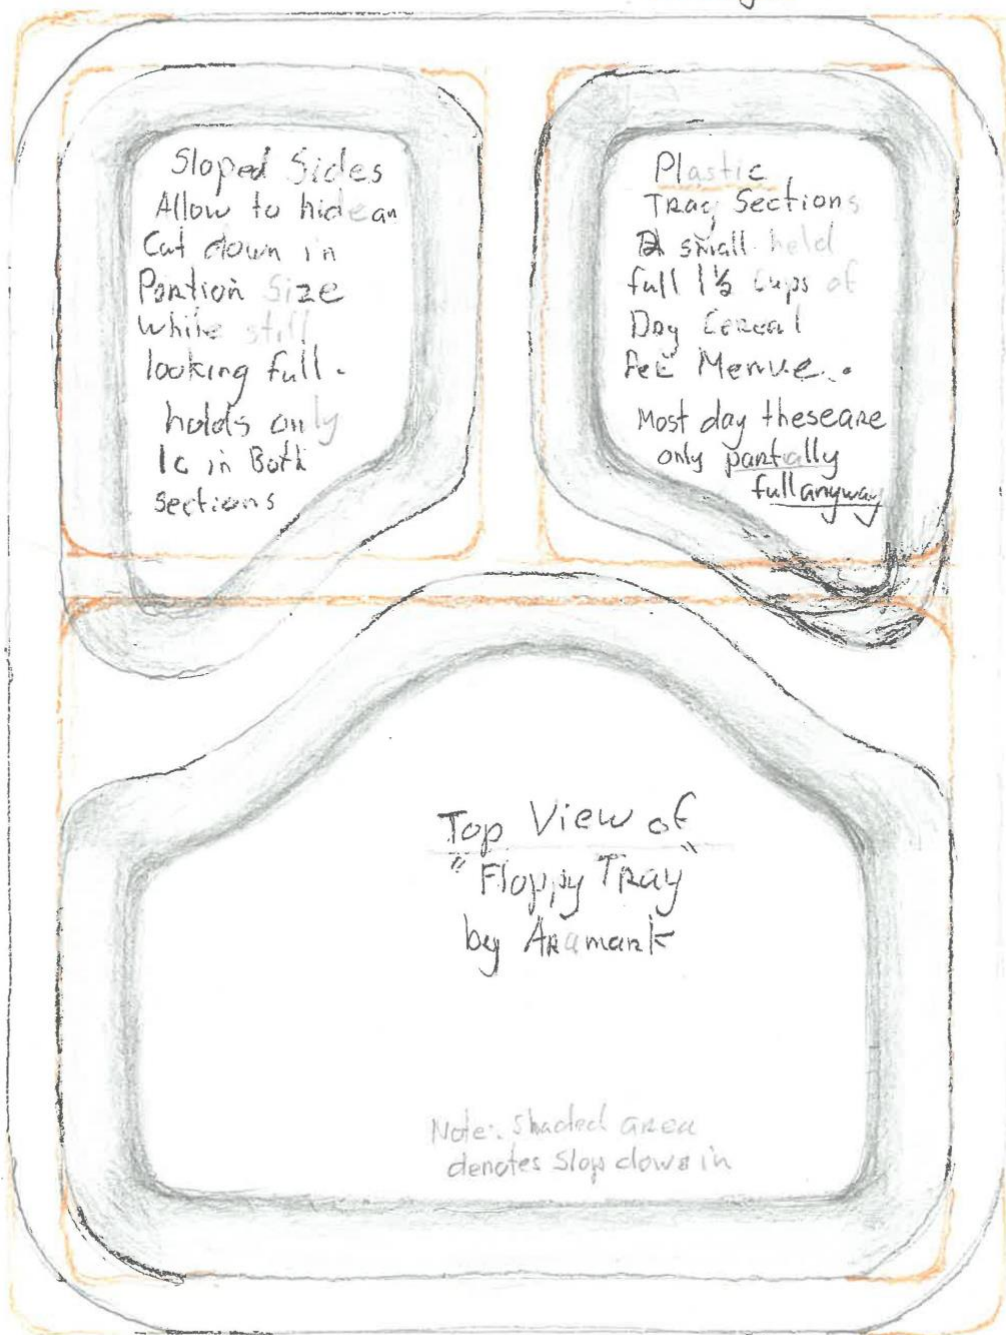 Sloped Sides
Allow to hide an
Cut down in
Portion Size
While still
looking full.
holds only
1c in Both
sections
Plastic
Tray Sections
2 small held
full 1½ cups of
Dry Cereal
Per Menue.
Most day these are
only partially
full anyway
Top View of
"Floppy Tray"
by Aramark
Note: Shaded area
denotes Slop down in